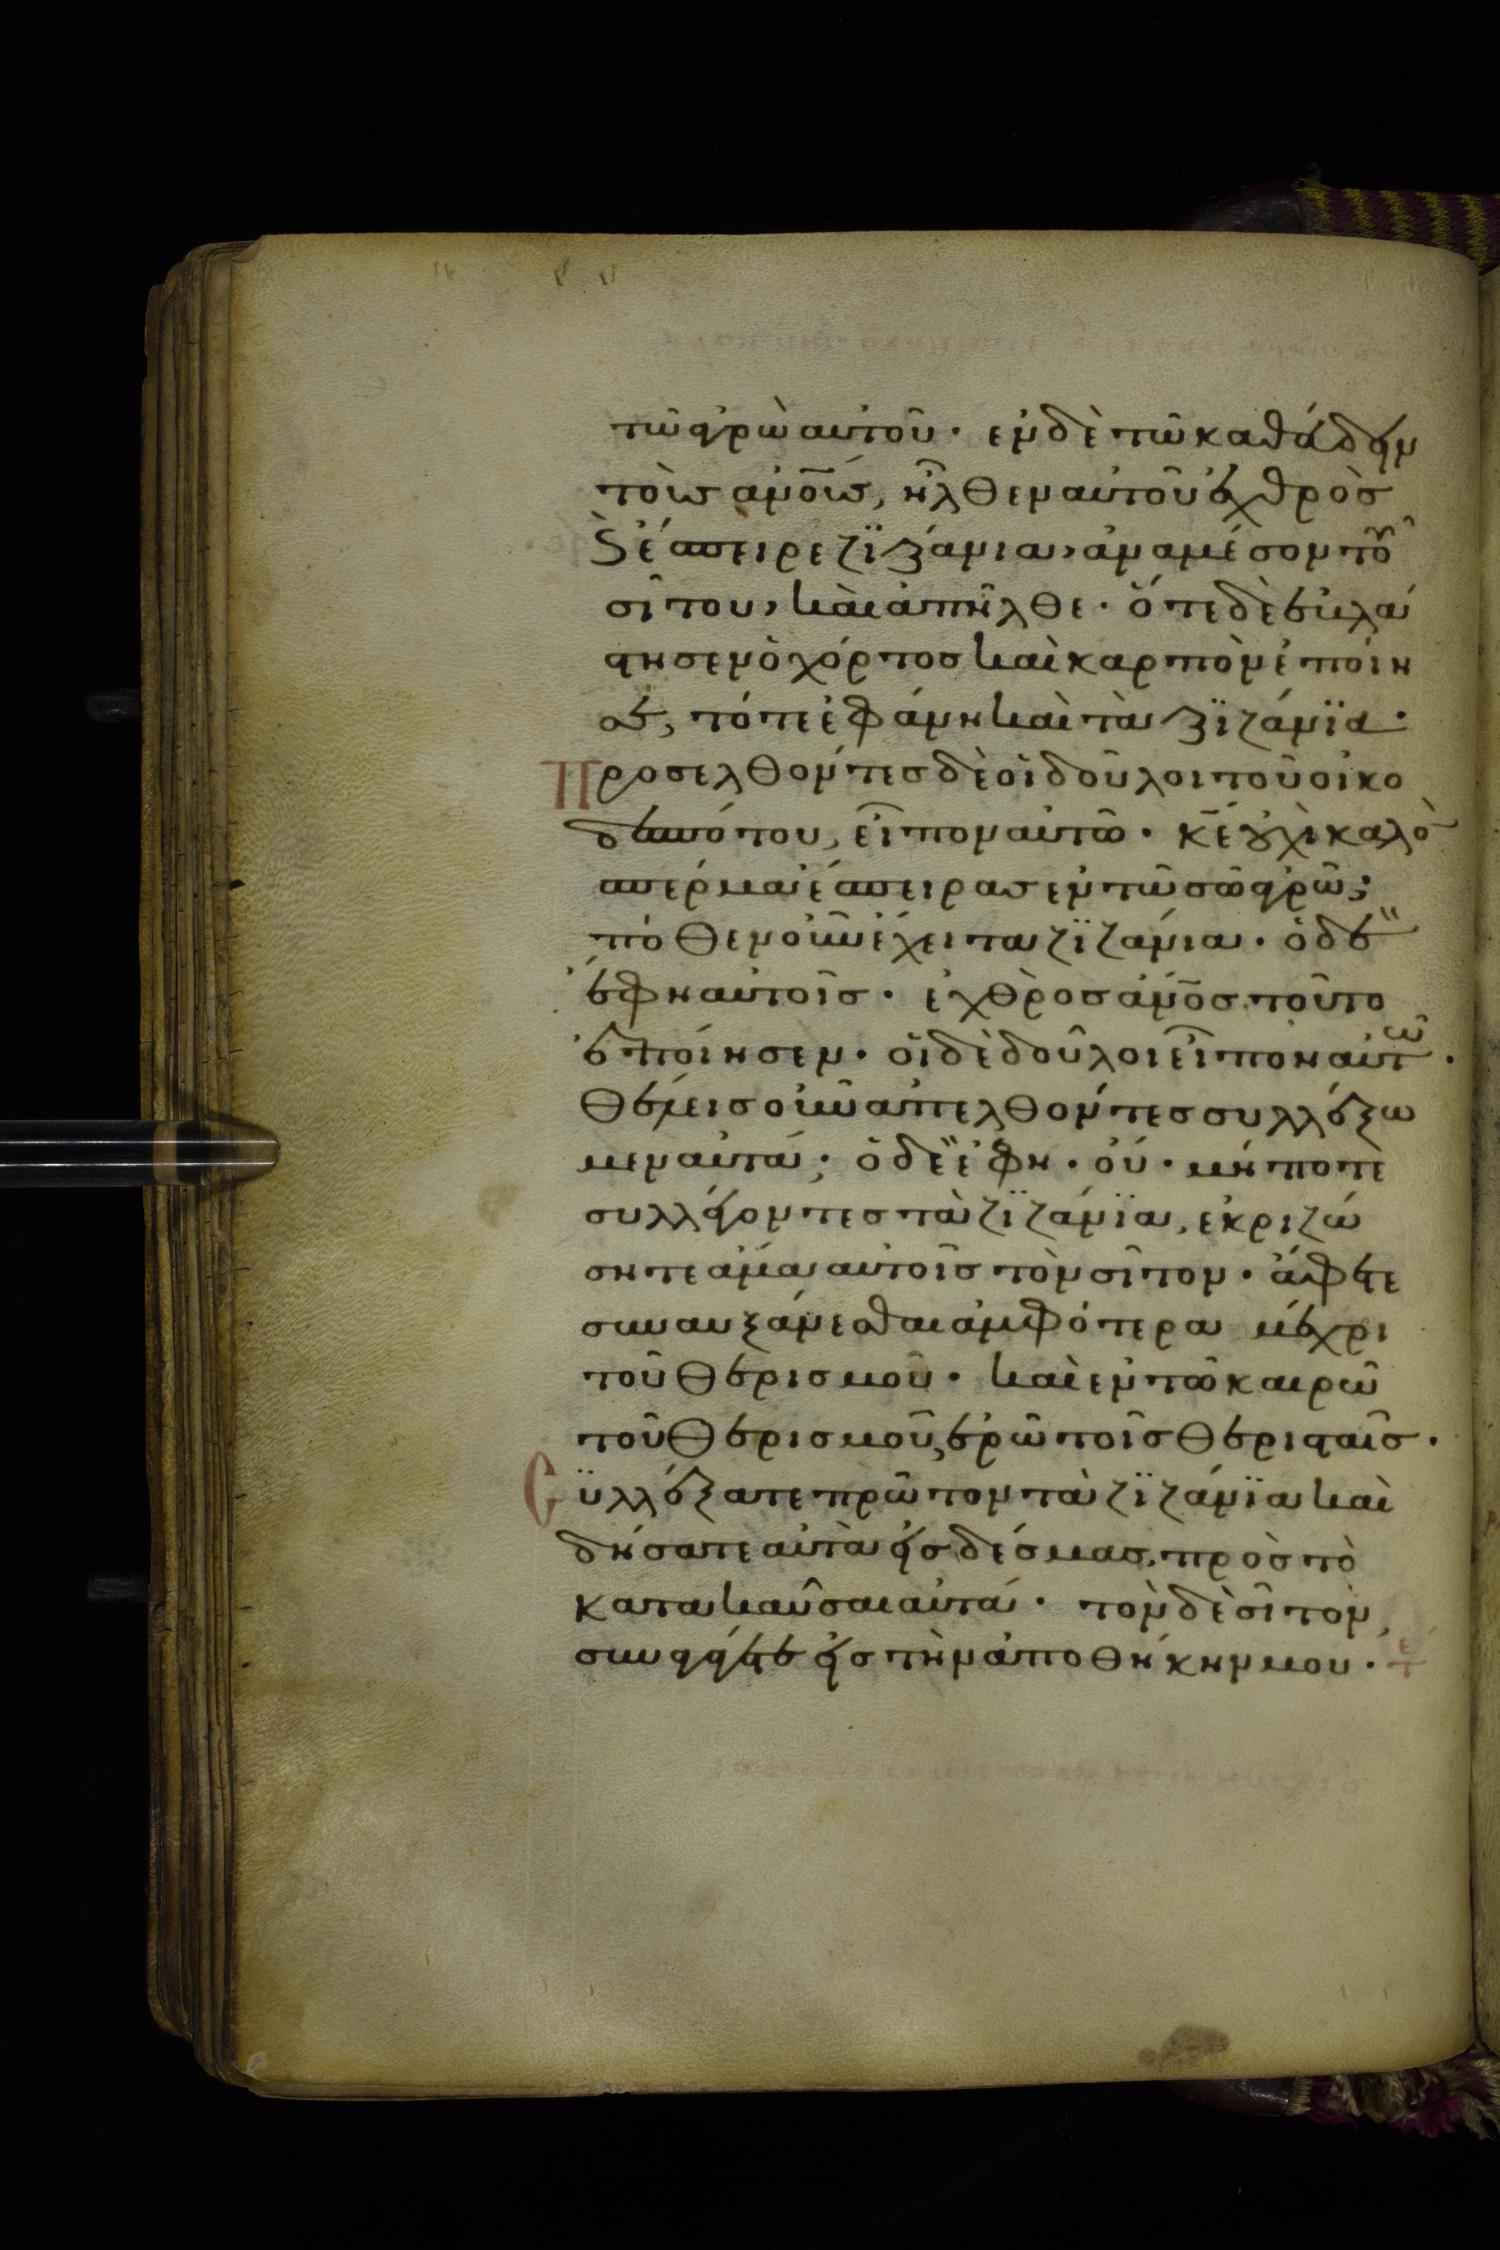 τῶ ἀγρῶ αὐτοῦ · ἐν δὲ τῶ καθεύδειν
τοὺσ ἀν̅ουσ, ἦλθεν αὐτοῦ ὁ ἐχθρὸσ
ϗ ἔσπειρε ζϊζάνια, ἀναμέσον τοῦ
σίτου, καὶ ἀπῆλθε · ὅτε δὲ ἐβλά
στησεν ὁ χόρτοσ καὶ καρπὸν ἐποίη
σε, τότε ἐφάνη καὶ τὰ ζϊζάνϊα ·
Προσελθόντεσ δὲ οἱ δοῦλοι τοῦ οἰκο
δεσπότου, εἶπον αὐτῶ · κ̅ε οὐχὶ καλὸ
σπέρμα ἔσπειρασ ἐν τῶ σῶ ἀγρῶ;
πόθεν οὖν ἔχει τα ζϊζάνια · ὁ δὲ
ἔφη αὐτοῖσ · ἐχθρὸσ ἀν̅οσ τοῦτο
ἐποίησεν · οἱ δὲ δοῦλοι εἶπον αὐτῶ ·
θέλεισ οὖν ἀπελθόντεσ συλλέξω
μεν αὐτά; ὁ δὲ ἔφη · οὐ · μήποτε
συλλέγοντεσ τὰ ζϊζάνϊα, ἐκριζώ
σητε ἅμα αὐτοῖσ τὸν σῖτον · ἄφετε
συναυξάνεσθαι ἀμφότερα μέχρι
τοῦ θερισμοῦ · καὶ ἐν τῶ καιρῶ
τοῦ θερισμοῦ, ἐρῶ τοῖσ θερισταῖσ ·
Cϋλλέξατε πρῶτον τὰ ζϊζάνϊα καὶ
δήσατε αὐτὰ εἰσ δέσμασ, πρὸσ τὸ
κατακαῦσαι αὐτά · τὸν δὲ σῖτον,
συναγάγετε εἰσ τὴν ἀποθήκην μου ·